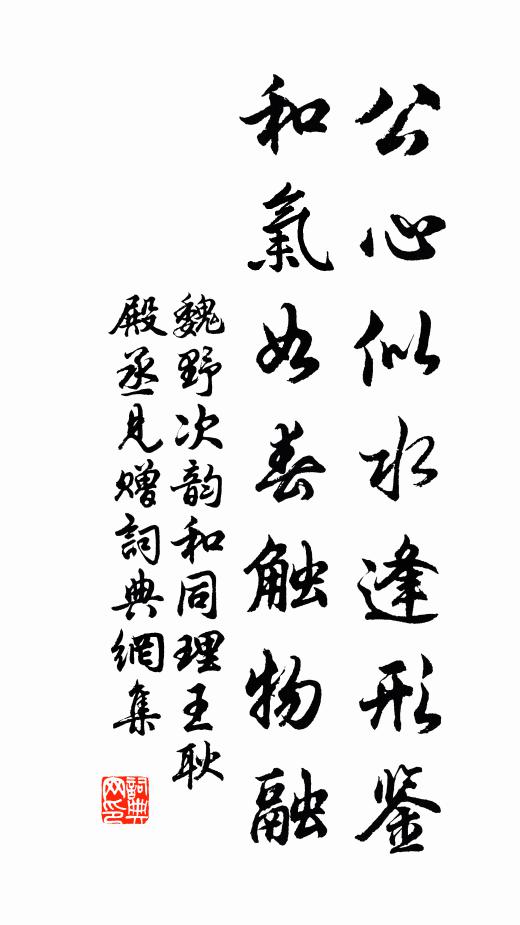 公心似水逢形鉴
和氣如春触物融
魏野次韵和同理王耿
殿丞見赠詞典網集
詞典
网印